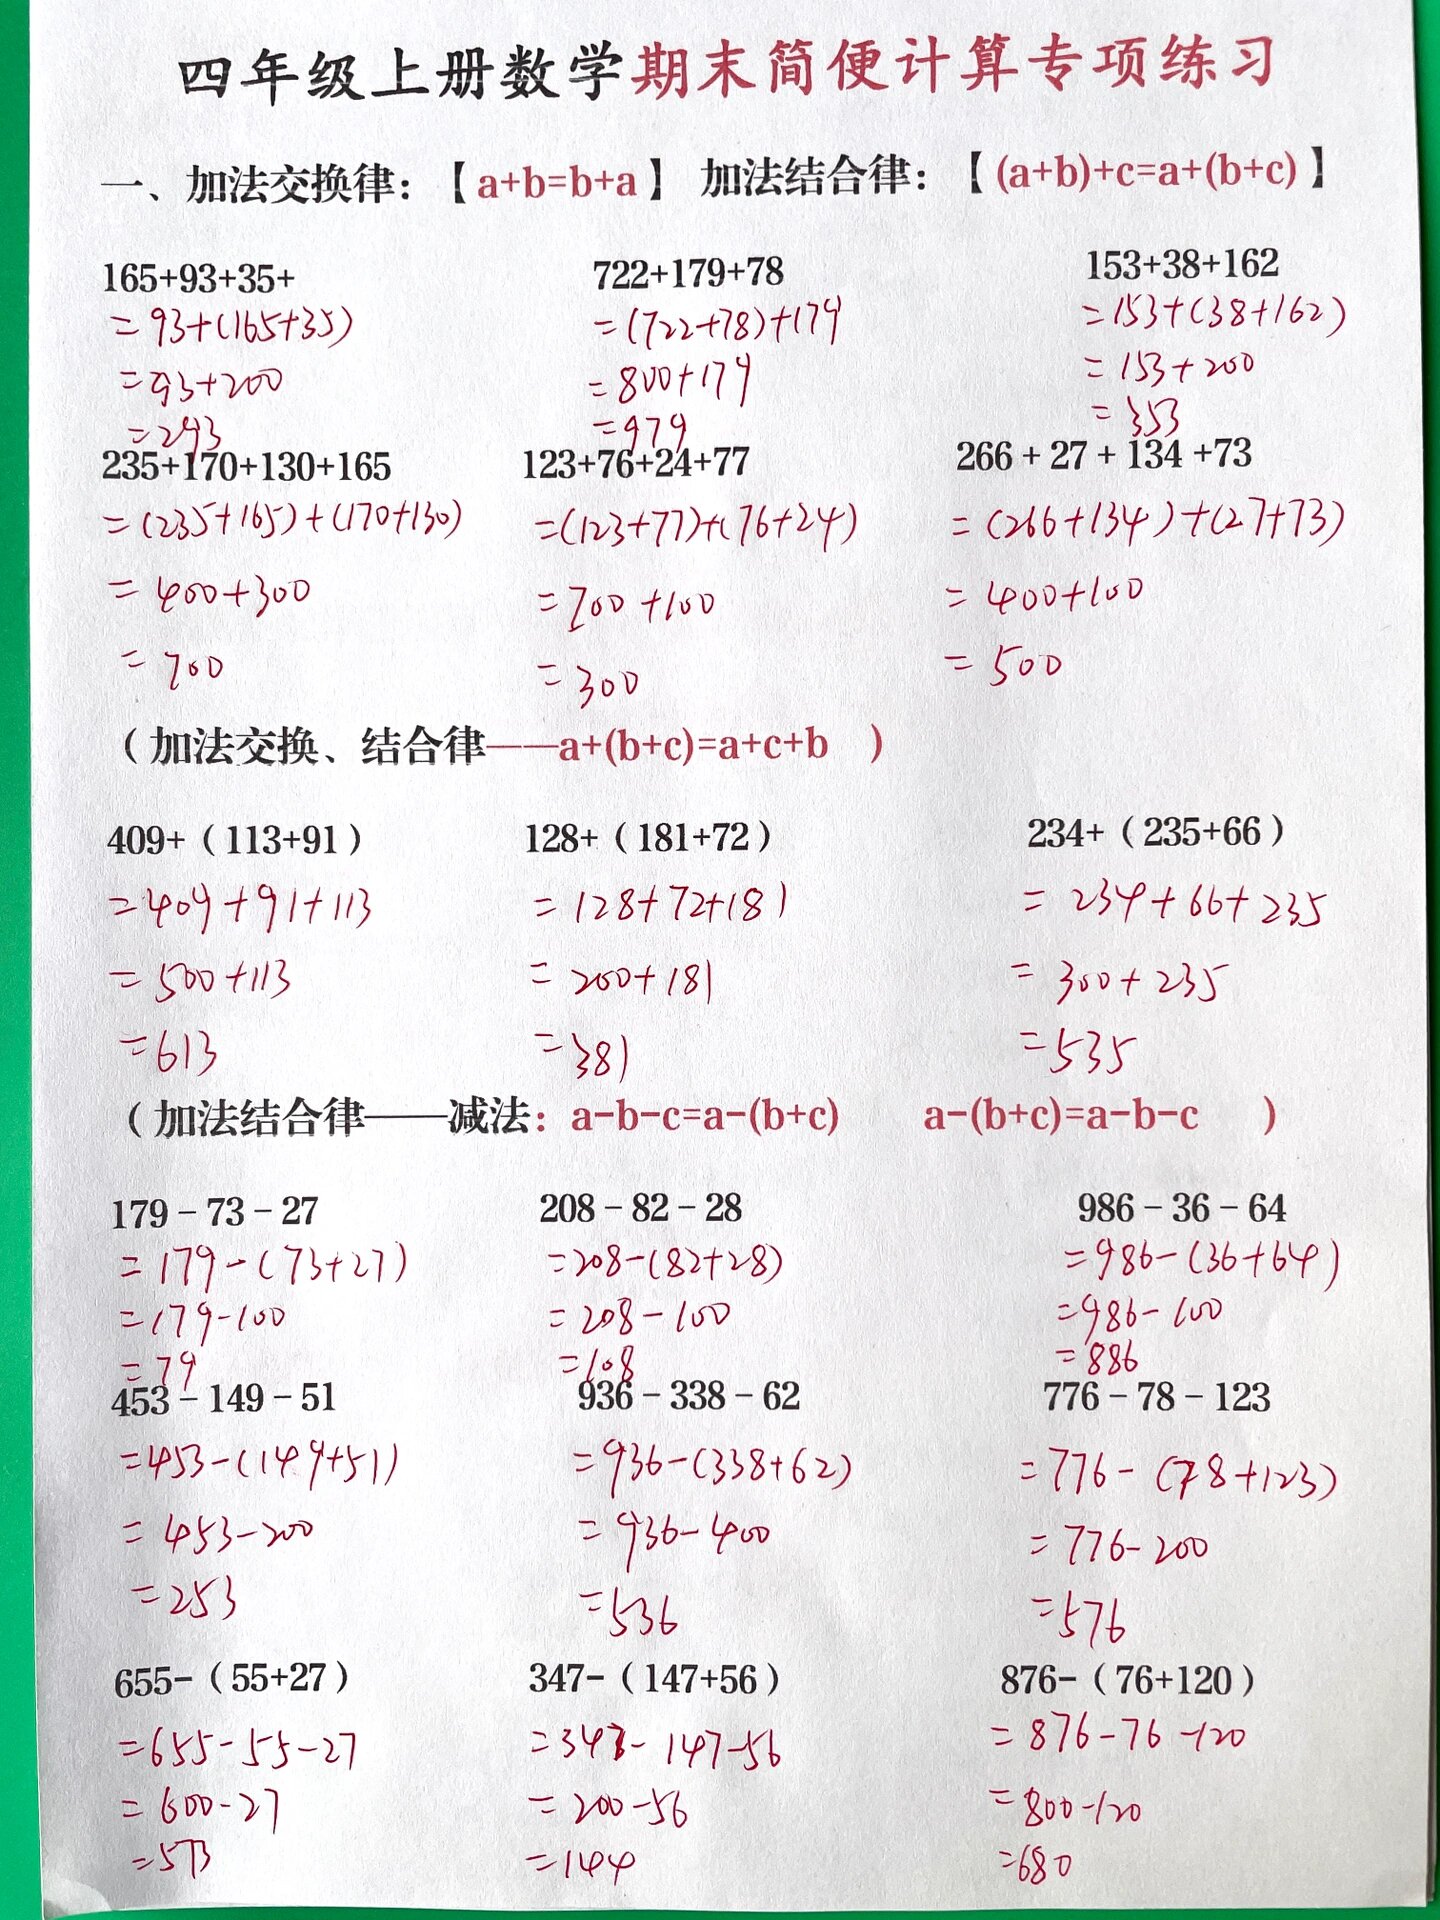 四年级上册数学期末简便计算专项练习
一、加法交换律：【a+b=b+a】 加法结合律：【(a+b)+c=a+(b+c)】
165+93+35+ 722+179+78 153+38+162
=93+(165+35) =(722+78)+179 =153+(38+162)
=93+200 =800+179 =153+200
=293 =979 =353
235+170+130+165 123+76+24+77 266+27+134+73
=(235+165)+(170+130) =(123+77)+(76+24) =(266+134)+(27+73)
=400+300 =200+100 =400+100
=700 =300 =500
（加法交换、结合律——a+(b+c)=a+c+b ）
409+（113+91） 128+（181+72） 234+（235+66）
=409+91+113 =128+72+181 =234+66+235
=500+113 =200+181 =300+235
=613 =381 =535
（加法结合律——减法：a-b-c=a-(b+c) a-(b+c)=a-b-c ）
179-73-27 208-82-28 986-36-64
=179-(73+27) =208-(82+28) =986-(36+64)
=179-100 =208-100 =986-100
=79 =108 =886
453-149-51 936-338-62 776-78-123
=453-(149+51) =936-(338+62) =776-(78+123)
=453-200 =936-400 =776-200
=253 =536 =576
655-（55+27） 347-（147+56） 876-（76+120）
=655-55-27 =347-147-56 =876-76-120
=600-27 =200-56 =800-120
=573 =144 =680